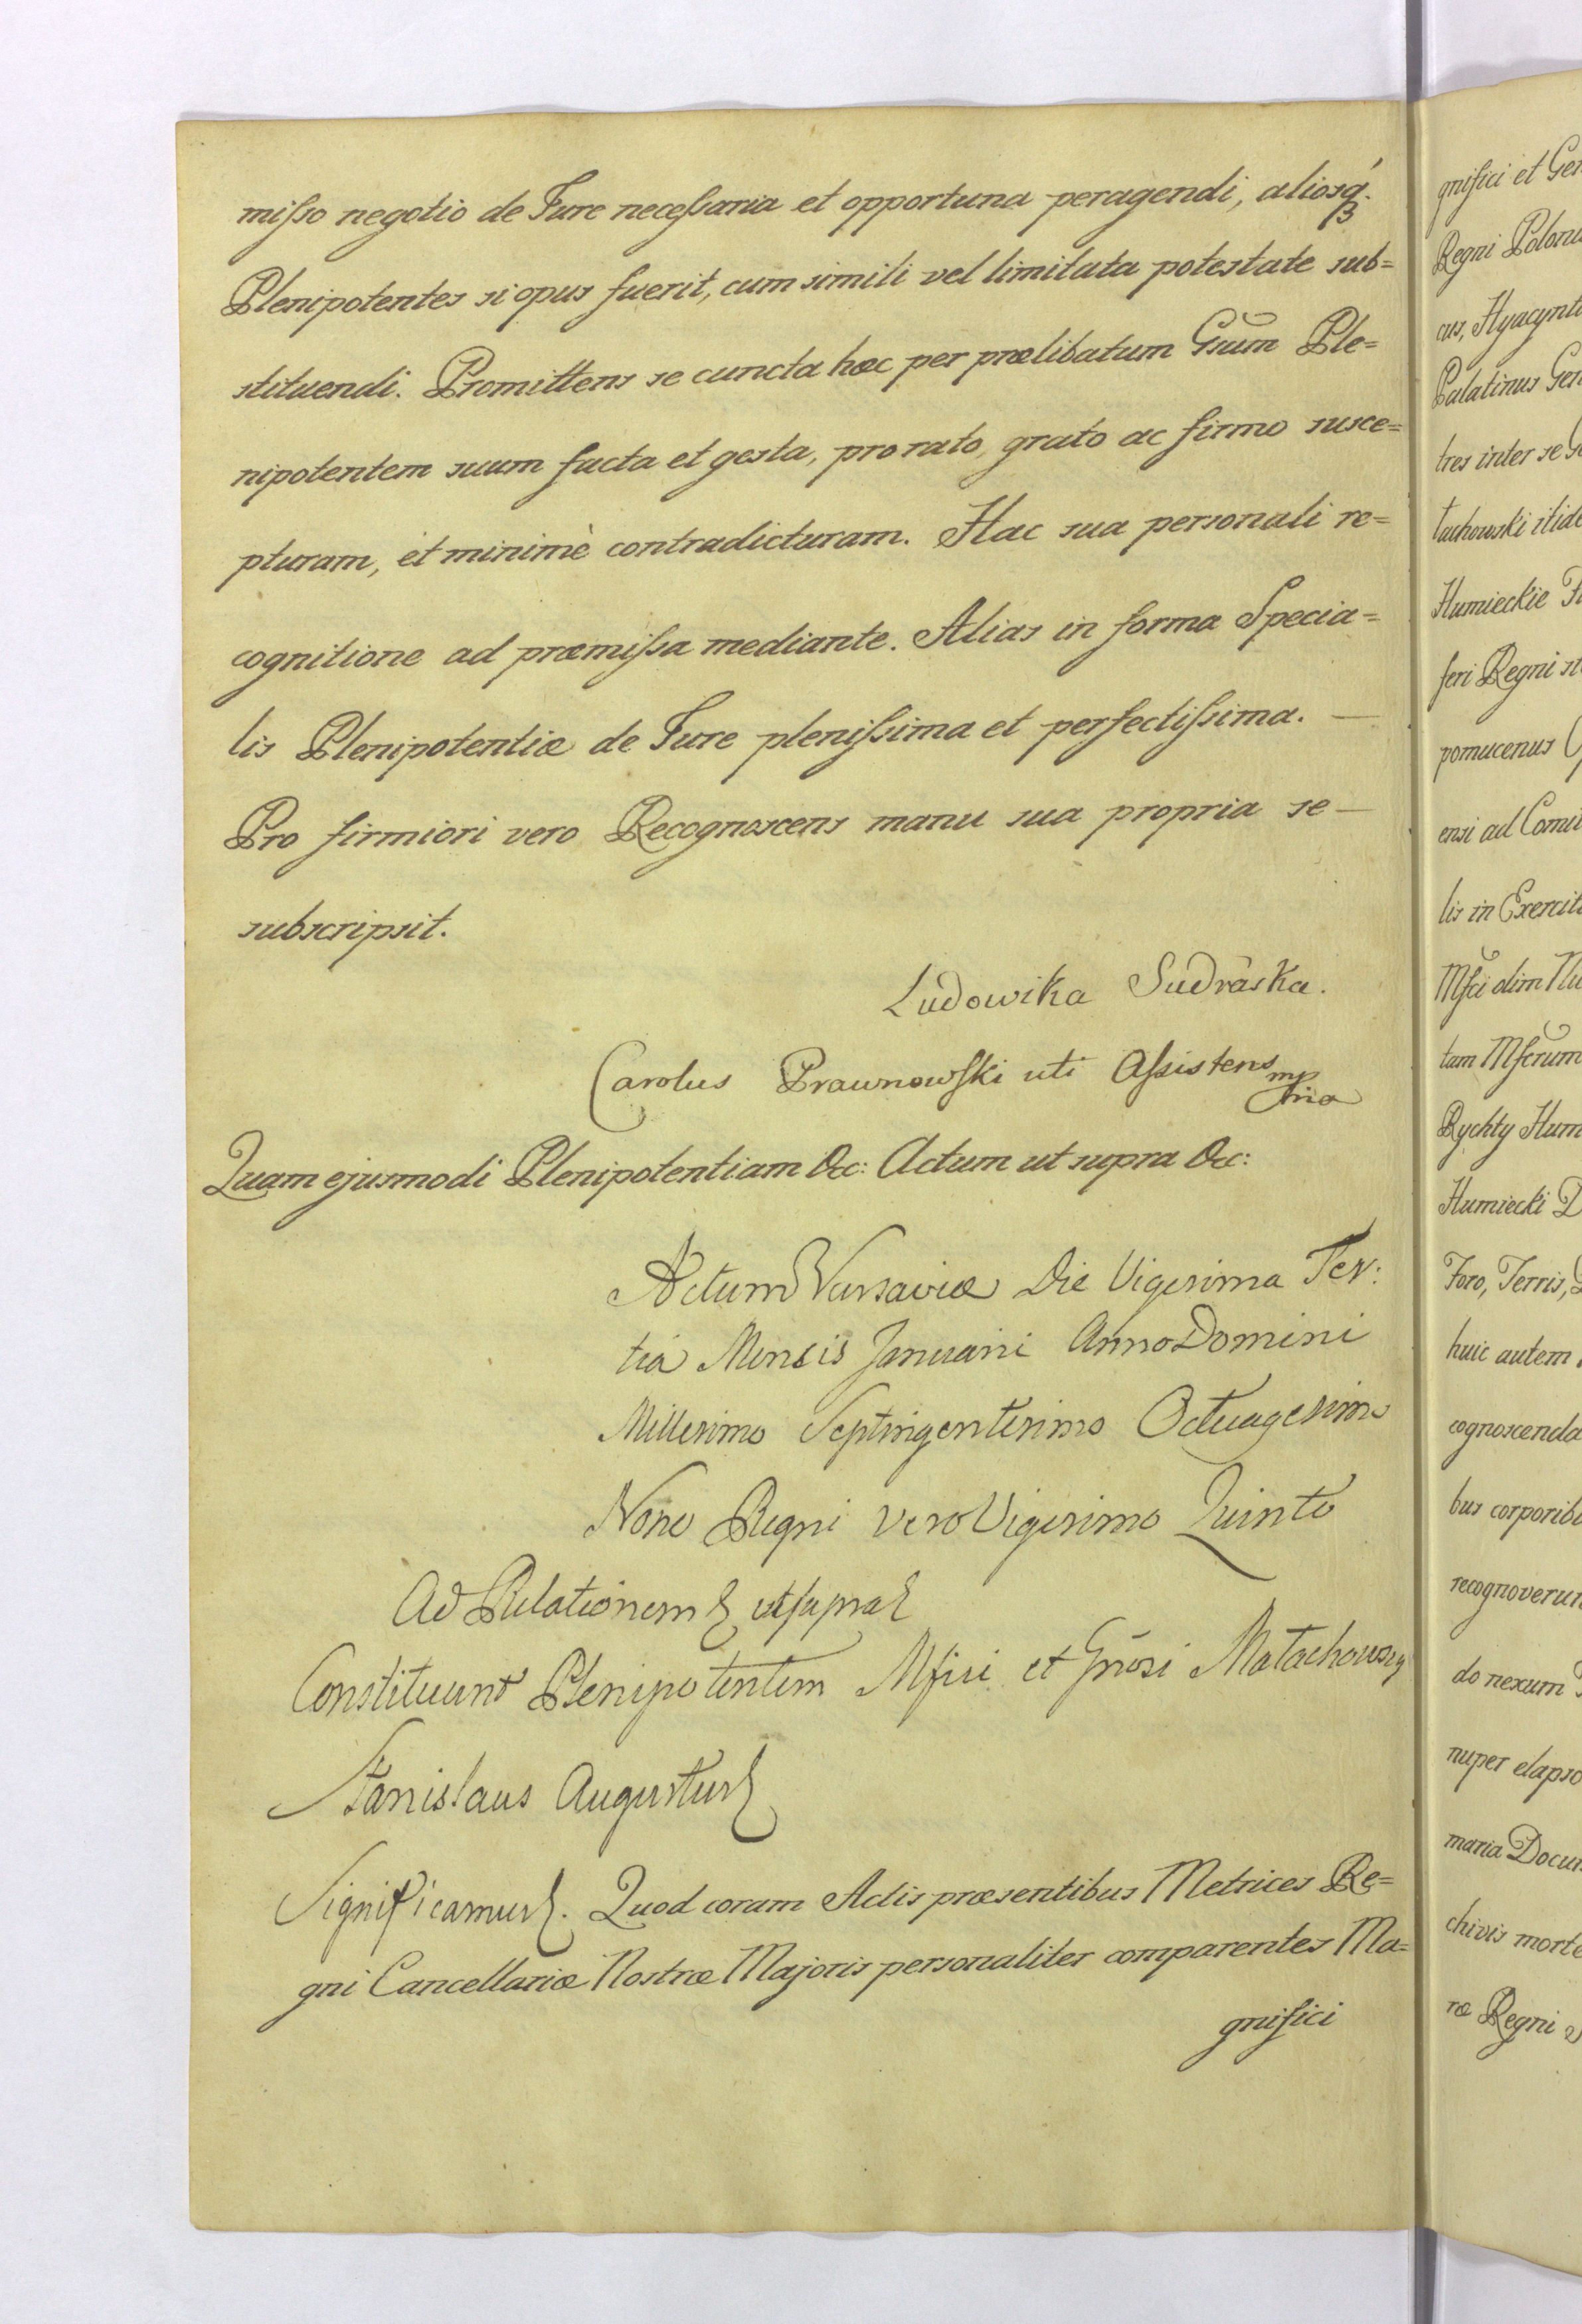 misso negotio de Jure necessaria et opportuna peragendi, aliosq́ꝫ
Plenipotentes si opus fuerit, cum simili vel limitata potestate sub=
stituendi. Promittens se cuncta hæc per prælibatum Gsum Ple=
nipotentem suum facta et gesta, pro rato, grato ac firmo susce=
pturam, et minimè contradicturam. Hac sua personali re=
cognitione ad præmissa mediante. Alias in forma Specia=
lis Plenipotentiæ de Jure plenissima et perfectissima. —
Pro firmiori vero Recognoscens manu sua propria se —
subscripsit.
Ludowika Sudraska.
Carolus Prawnowski uti Assistens mp
pria
Quam ejusmodi Plenipotentiam &c: Actum ut supra &c:
Actum Varsaviæ Die Vigesima Ter:
tia Mensis Januarii Anno Domini
Millesimo Septingentesimo Octuagesimo
Nono Regni vero Vigesimo Quinto
Ad Relationem & ut supra &
Constituunt Plenipotentem Mfici et Gnōsi Małachowscy
Stanislaus Augustus &
Significamus &. Quod coram Actis præsentibus Metrices Re=
gni Cancellariæ Nostræ Majoris personaliter comparentes Ma=
gnifici
gnifici et Gen
Regni Polonu
cus, Hyacynt
Palatinus Gen
tres inter se G
łachowski itide
Humieckie
feri Regni
pomucenus
ensi ad Comi
lis in Exercit
Mfci olim Nu
tam Mfcrum
Rychty Hum
Humiecki D
Foro, Terris,
huic autem
cognoscenda
bus corporibu
recognoverun
do nexum
nuper elapso
maria Docum
chivis morte
ræ Regni